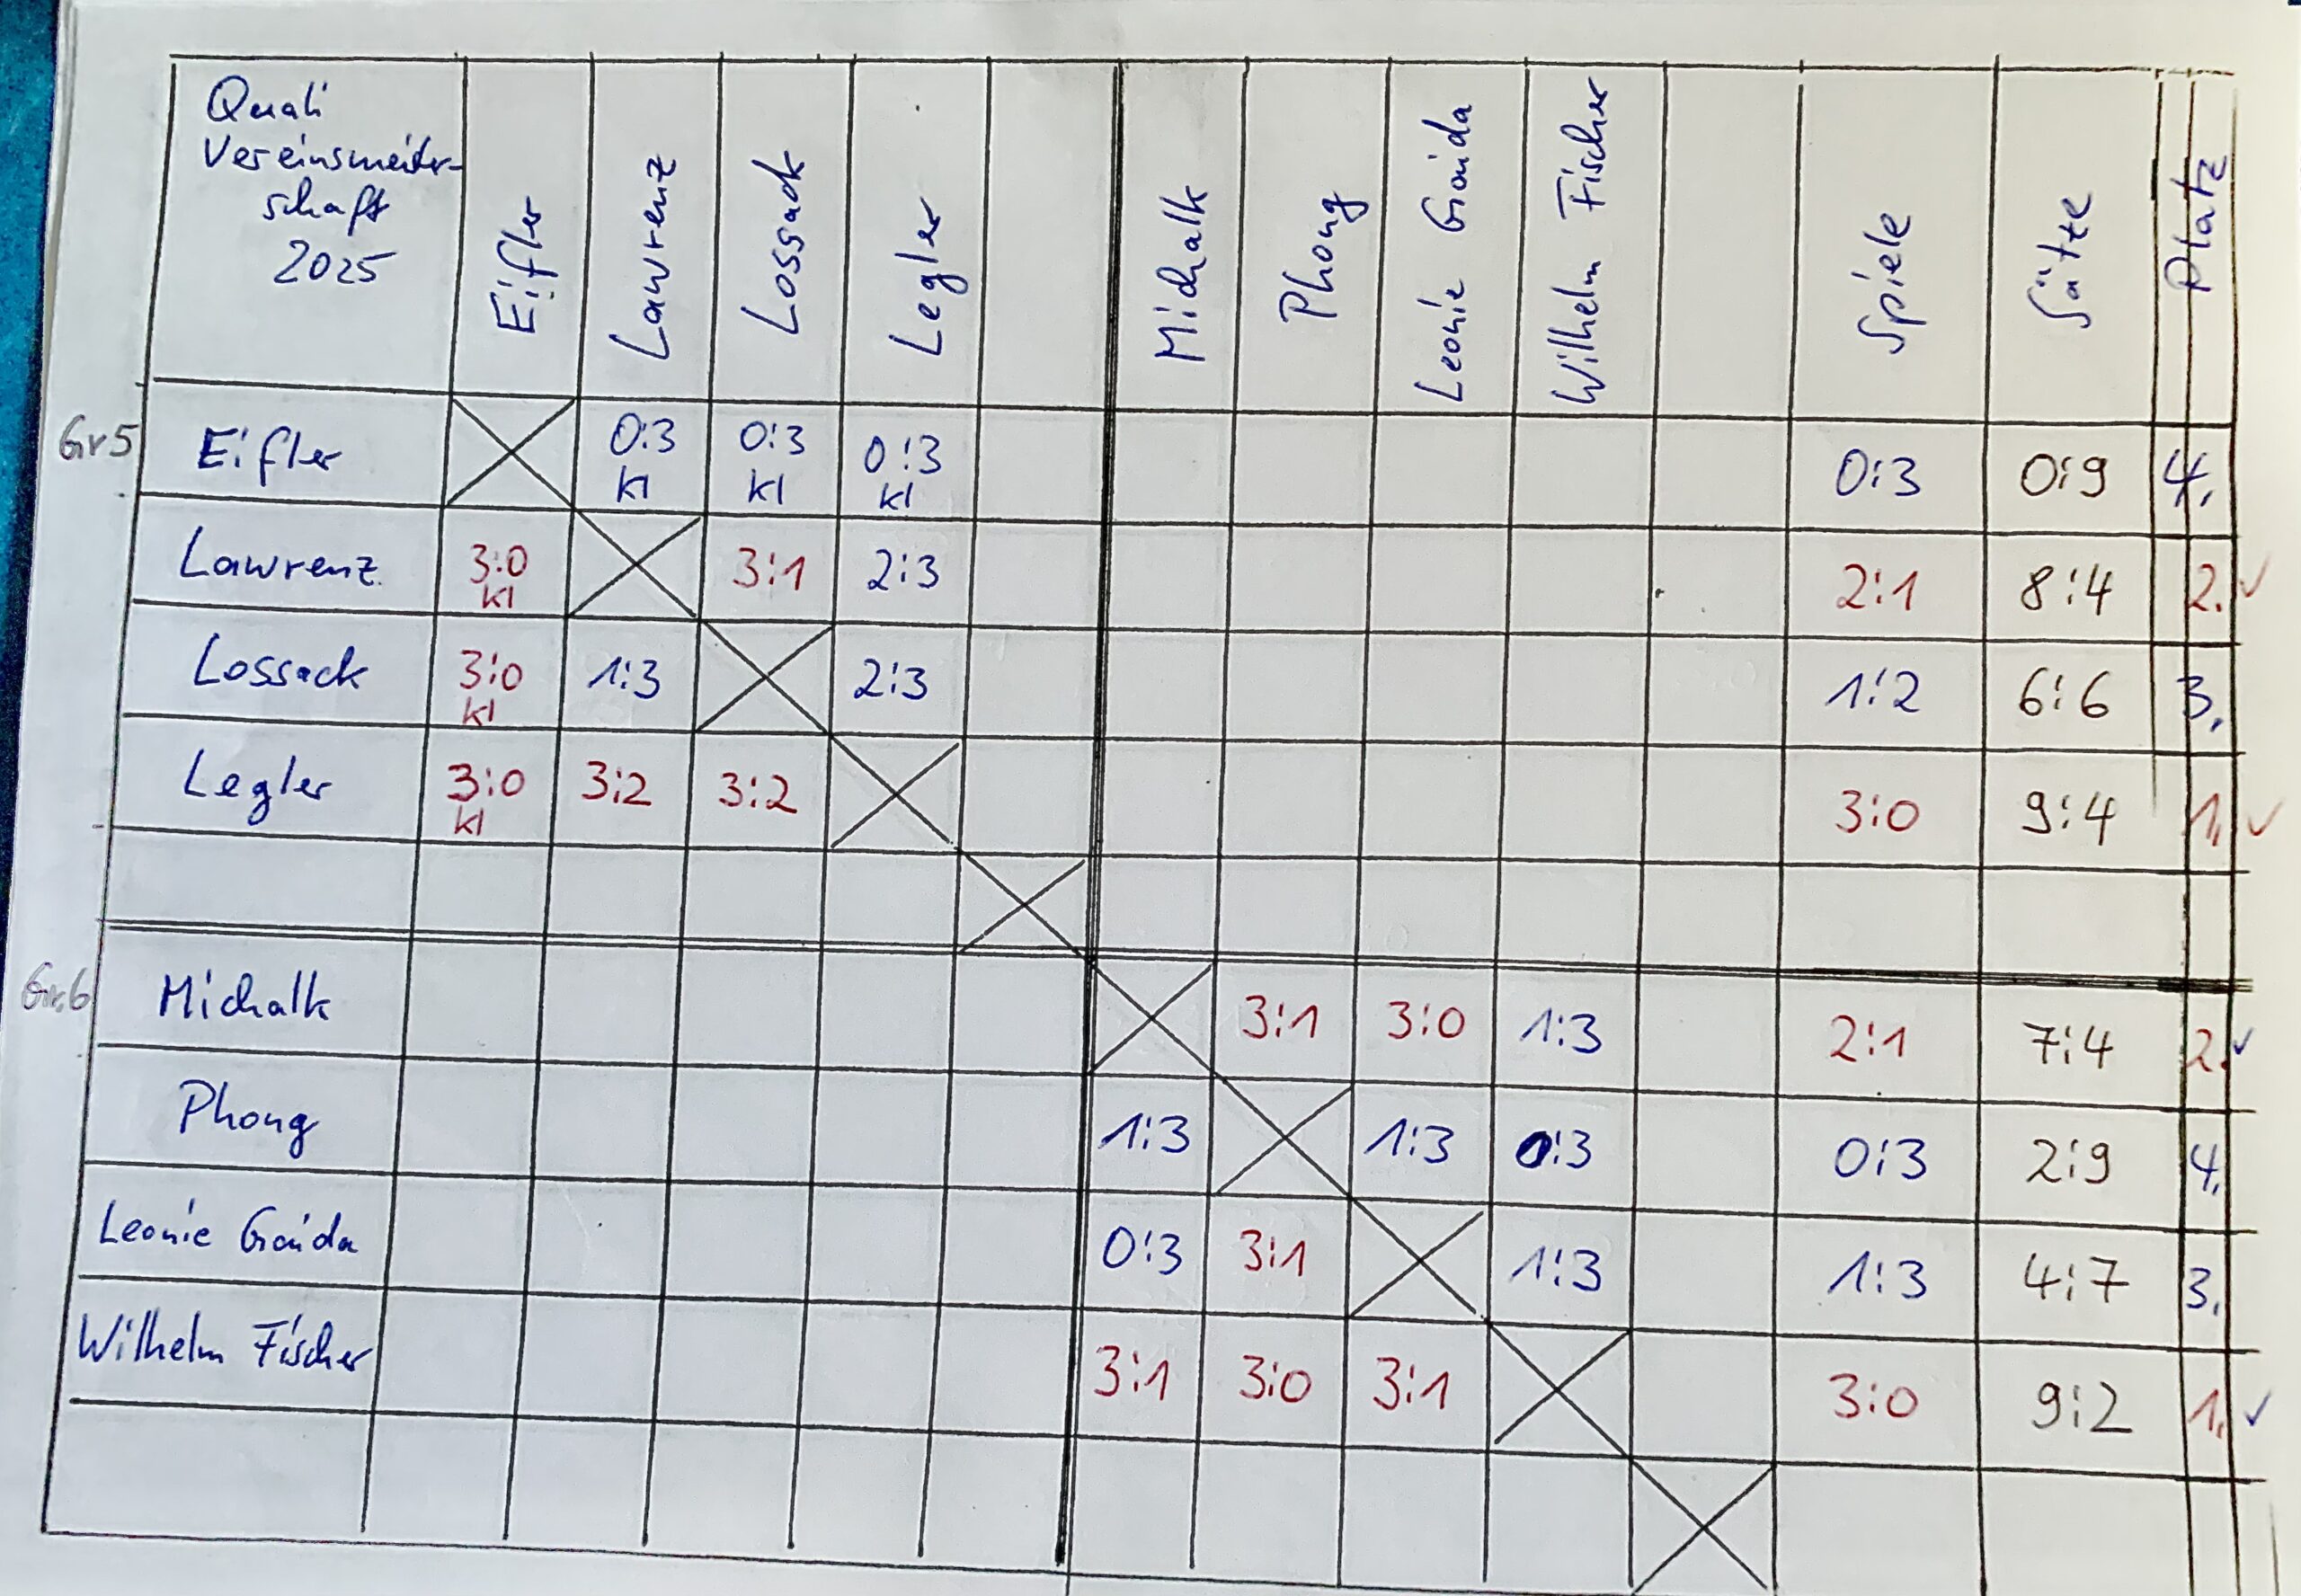 Quali
Vereinsmeister-
schaft
2025
Eifler
Lawrenz
Lossack
Legler
Michalk
Phong
Leonie Gaida
Wilhelm Fischer
Spiele
Sätze
Platz
Gr 5
Eifler 0:3 kl 0:3 kl 0:3 kl 0:3 0:9 4.
Lawrenz 3:0 kl 3:1 2:3 2:1 8:4 2. ✓
Lossack 3:0 kl 1:3 2:3 1:2 6:6 3.
Legler 3:0 kl 3:2 3:2 3:0 9:4 1. ✓
Gr. 6
Michalk 3:1 3:0 1:3 2:1 7:4 2. ✓
Phong 1:3 1:3 0:3 0:3 2:9 4.
Leonie Gaida 0:3 3:1 1:3 1:3 4:7 3.
Wilhelm Fischer 3:1 3:0 3:1 3:0 9:2 1. ✓